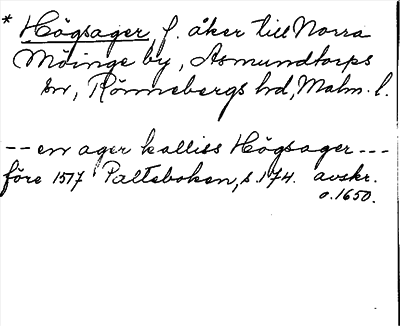 * Högsager, f. åker till Norra
Möinge by, Asmundtorps
sn, Rönnebergs hd, Malm. l.
-- en ager kalliss Högsager ---
före 1517 Palteboken, s. 174. avskr.
o. 1650.